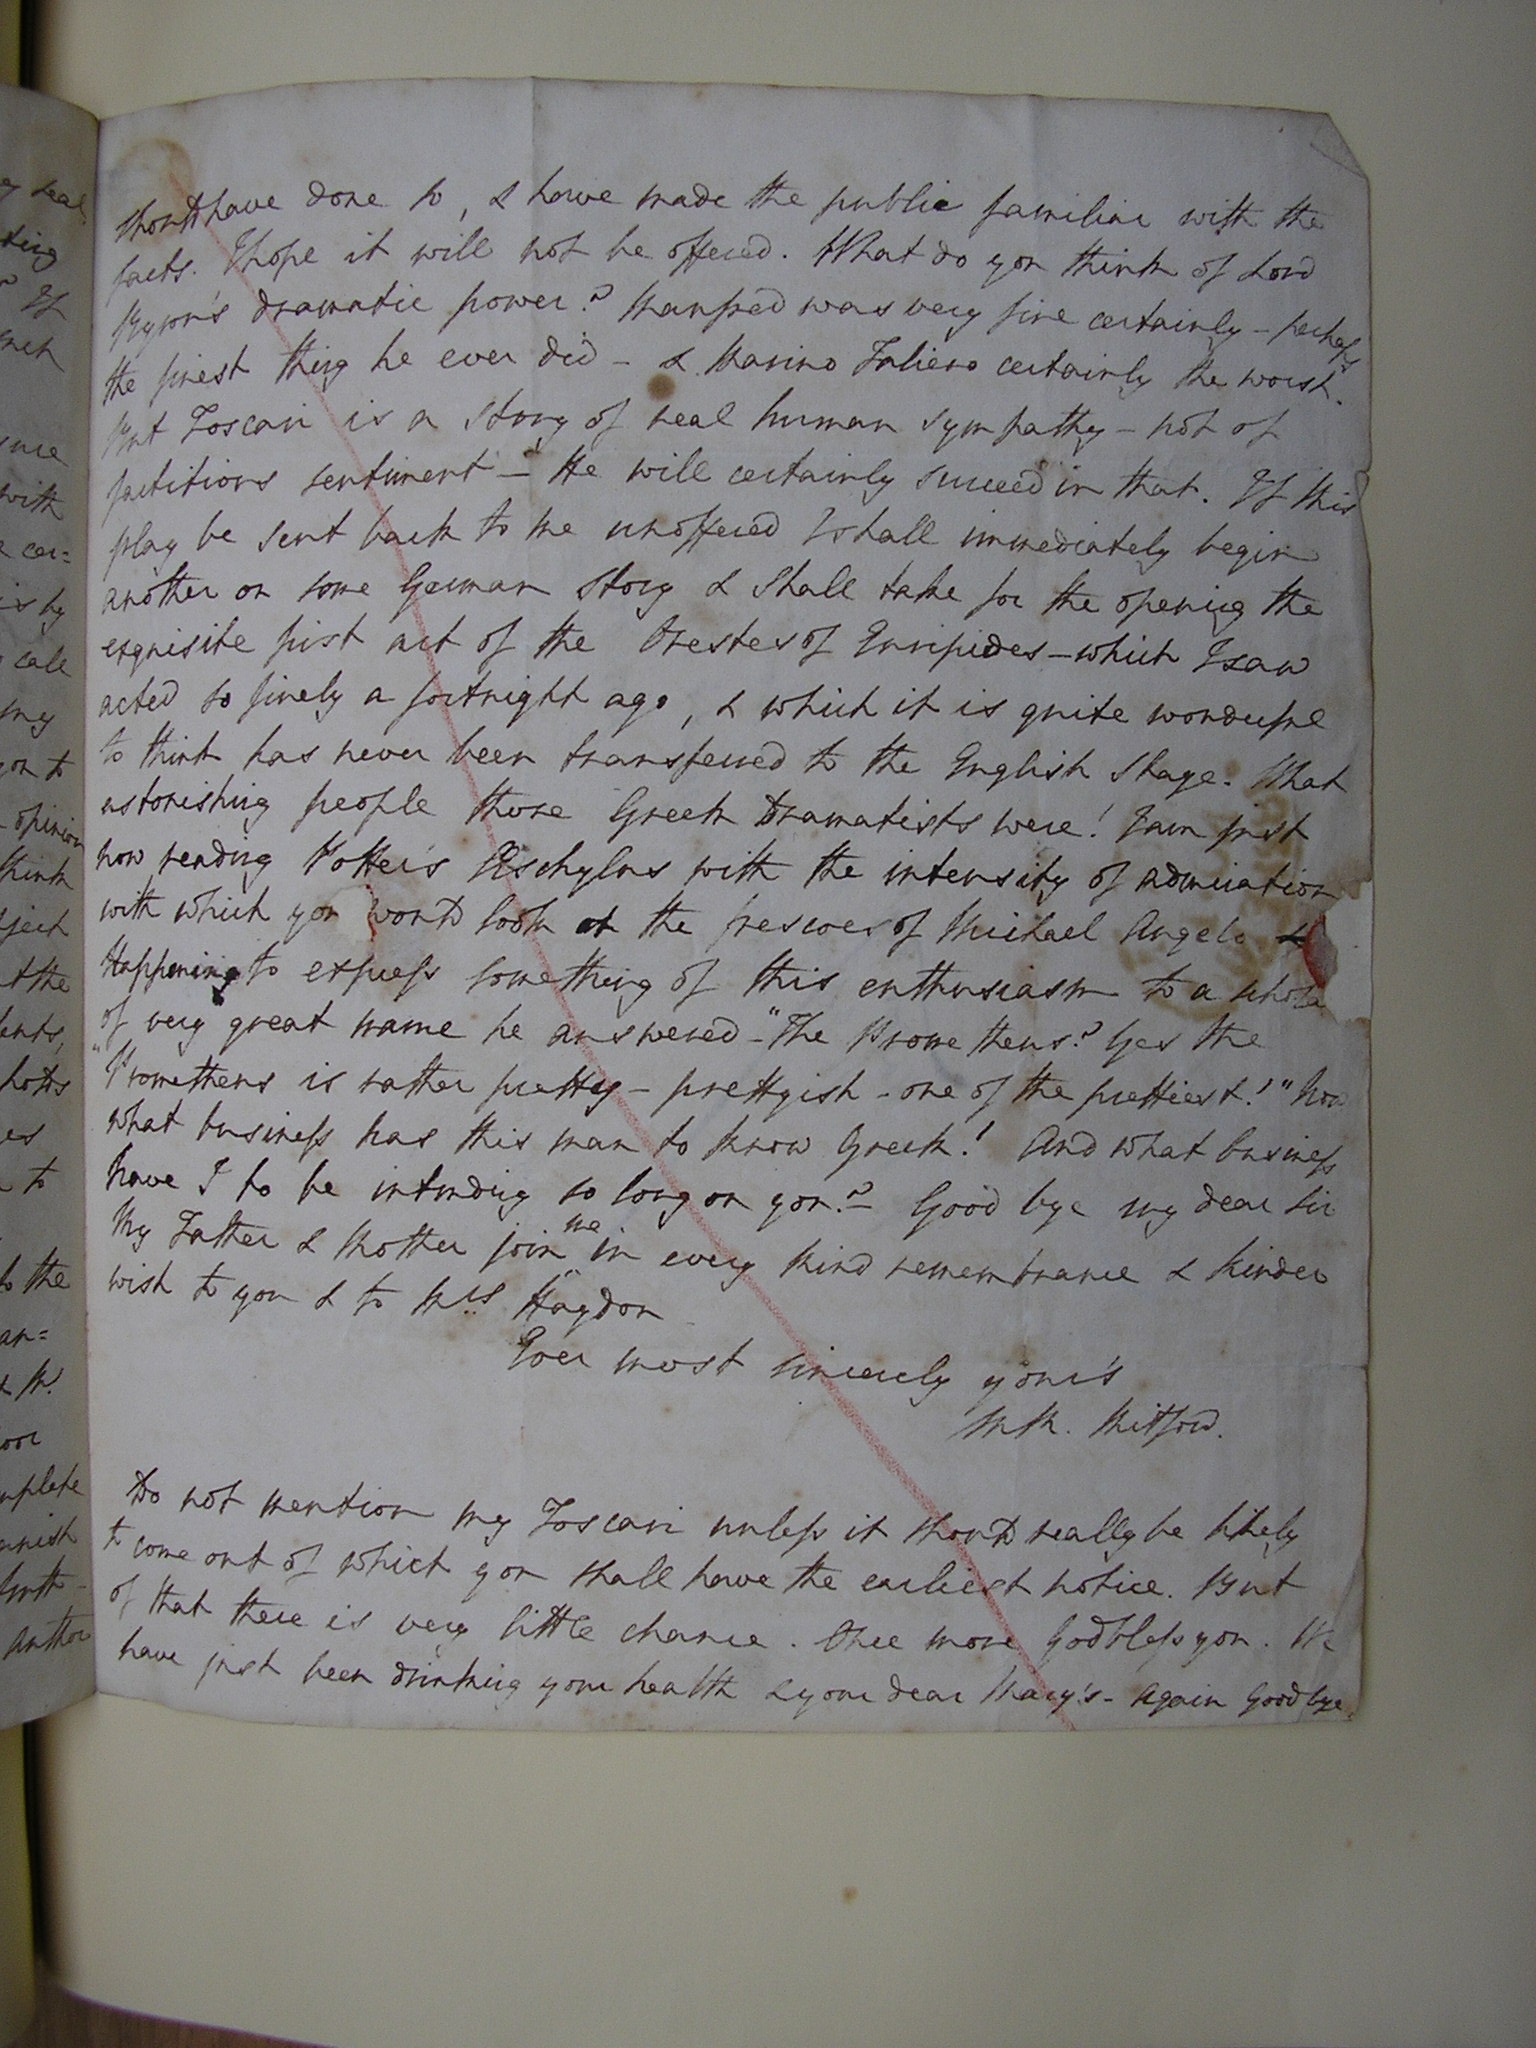 should have done so, & have made the public familiar with the
facts. I hope it will not be offered. What do you think of Lord
Byron's dramatic power? Manfred was very fine certainly – perhaps
the finest thing he ever did – & Marino Faliero certainly the worst.
But Foscari is a story of real human sympathy – not of
factitious sentiment – He will certainly succeed in that. If this
play be sent back to me unoffered I shall immediately begin
another on some German story & shall take for the opening the
exquisite first act of the Orestes of Euripides – which I saw
acted so finely a fortnight ago, & which it is quite wonderful
to think has never been transferred to the English Stage. What
astonishing people those Greek Dramatists were! I am just
now reading Potter's Æschylus with the intensity of admiration
with which you would look at the frescoes of Michael Angelo &
Happening to express something of this enthusiasm to a schola
of very great name he answered – "The Prometheus? Yes the
"Prometheus is rather pretty – prettyish – one of the prettiest!" Now
what business has this man to know Greek! And what business
have I to be intruding so long on you? – Good bye my dear Sir
My Father & Mother join me in every kind remembrance & kinder
wish to you & to Mrs Haydon
Ever most sincerely your's
M R. Mitford.
Do not mention my Foscari unless it should really be likely
to come out of which you shall have the earliest notice. But
of that there is very little chance. Once more God bless you. We
have just been drinking your health & your dear Mary's – Again Good bye.
ting
If
with
cer=
is by
call
my
you to
opinion
think
ject
the
es
to
to the
an=
nplete
Author